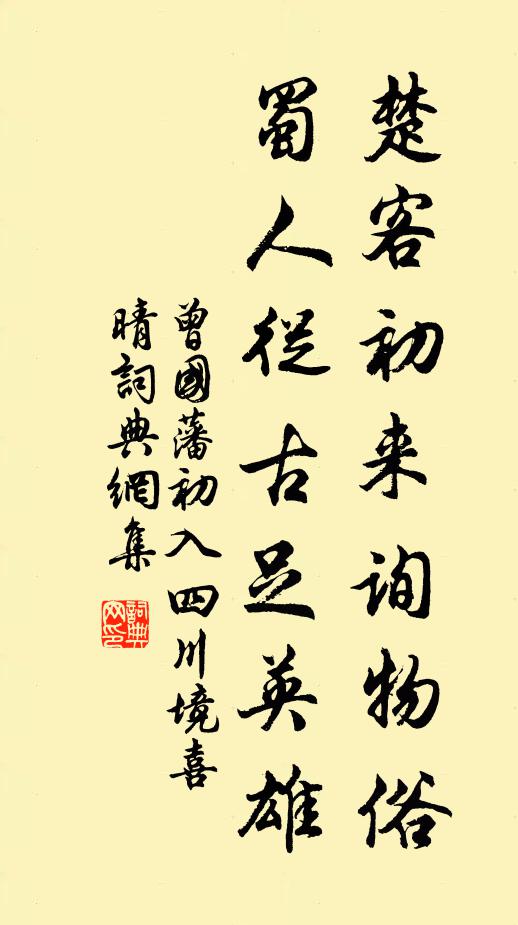 楚客初来询物俗
蜀人從古足英雄
曾國藩初入四川境喜
晴詞典網集
詞典
网印